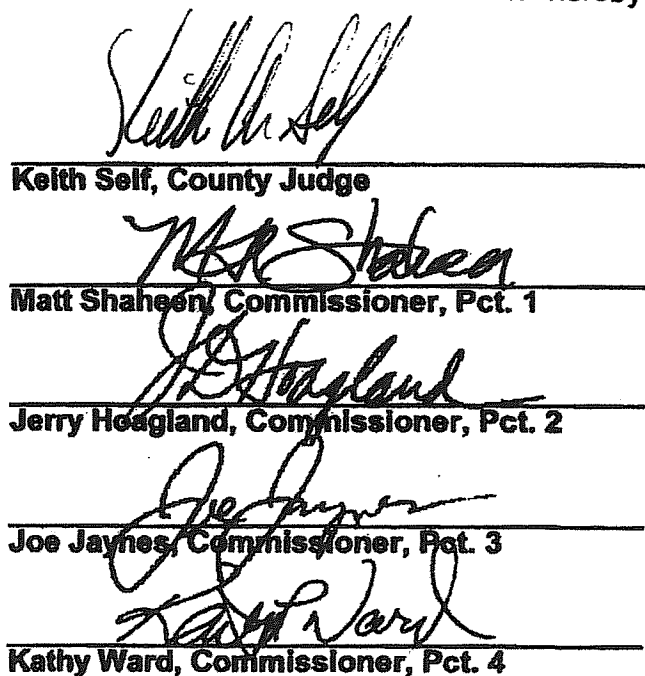 hereby
Keith A Self
Keith Self, County Judge
M Shaheen
Matt Shaheen, Commissioner, Pct. 1
JD Hoagland
Jerry Hoagland, Commissioner, Pct. 2
Joe Jaynes
Joe Jaynes, Commissioner, Pct. 3
Kathy Ward
Kathy Ward, Commissioner, Pct. 4